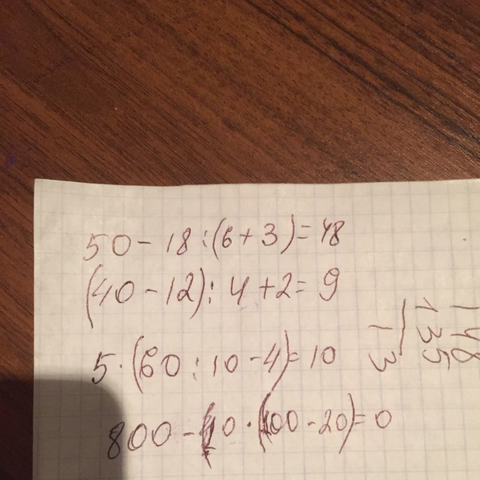 50-18:(6+3)=48
(40-12):4+2=9
5·(60:10-4)=10
800-10·(100-20)=0
148
135
13